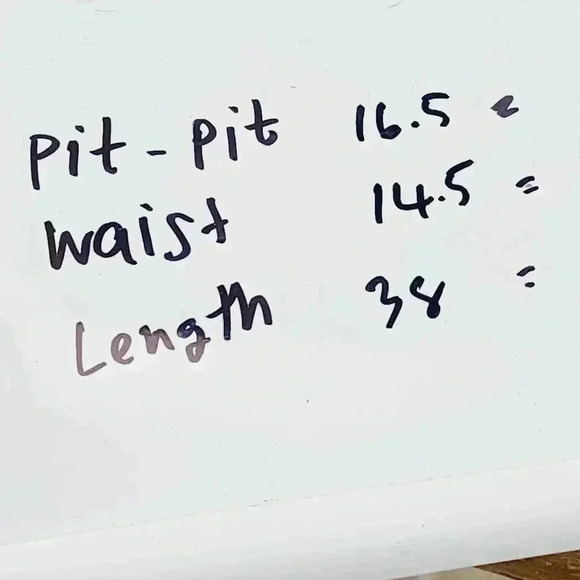 Pit-Pit 16.5 "
Waist 14.5 "
Length 38 "